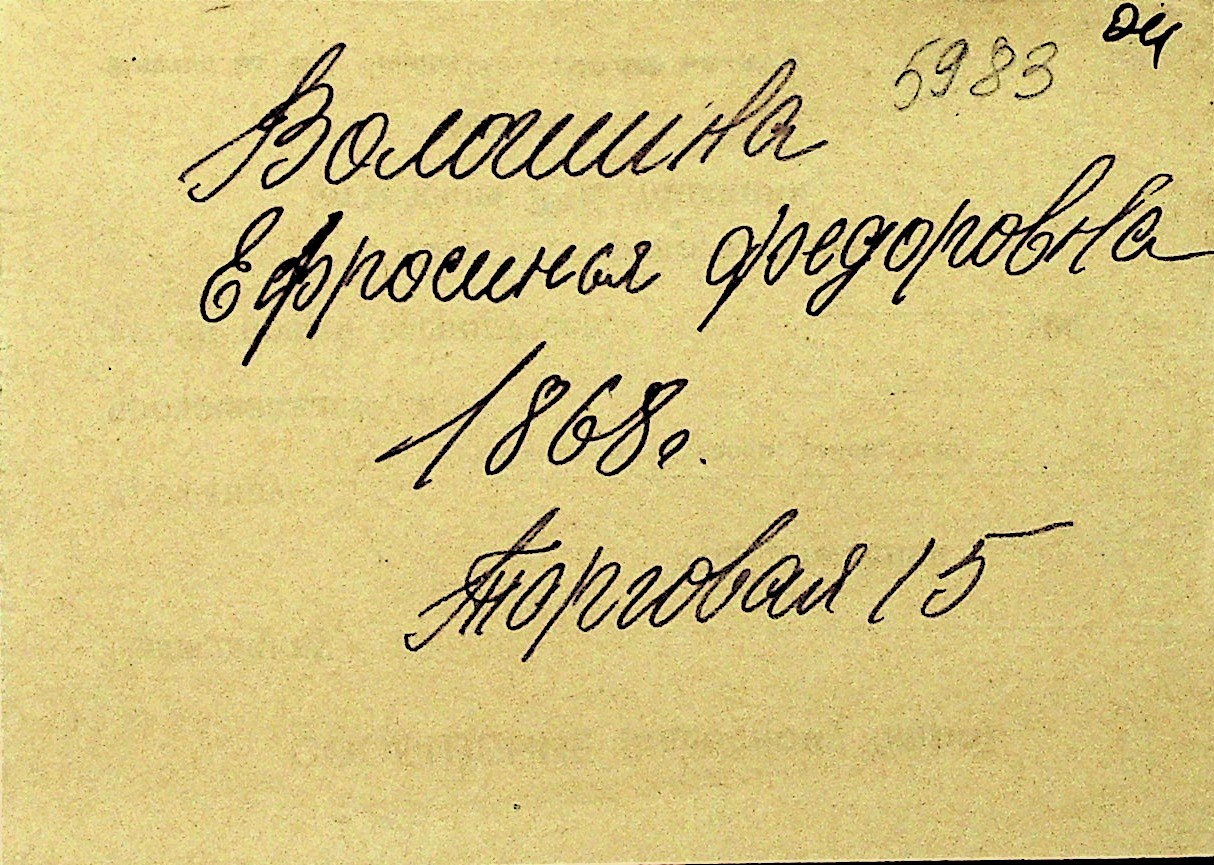 5983
Волошина
Ефросинья Федоровна
1868г.
Торговая 15